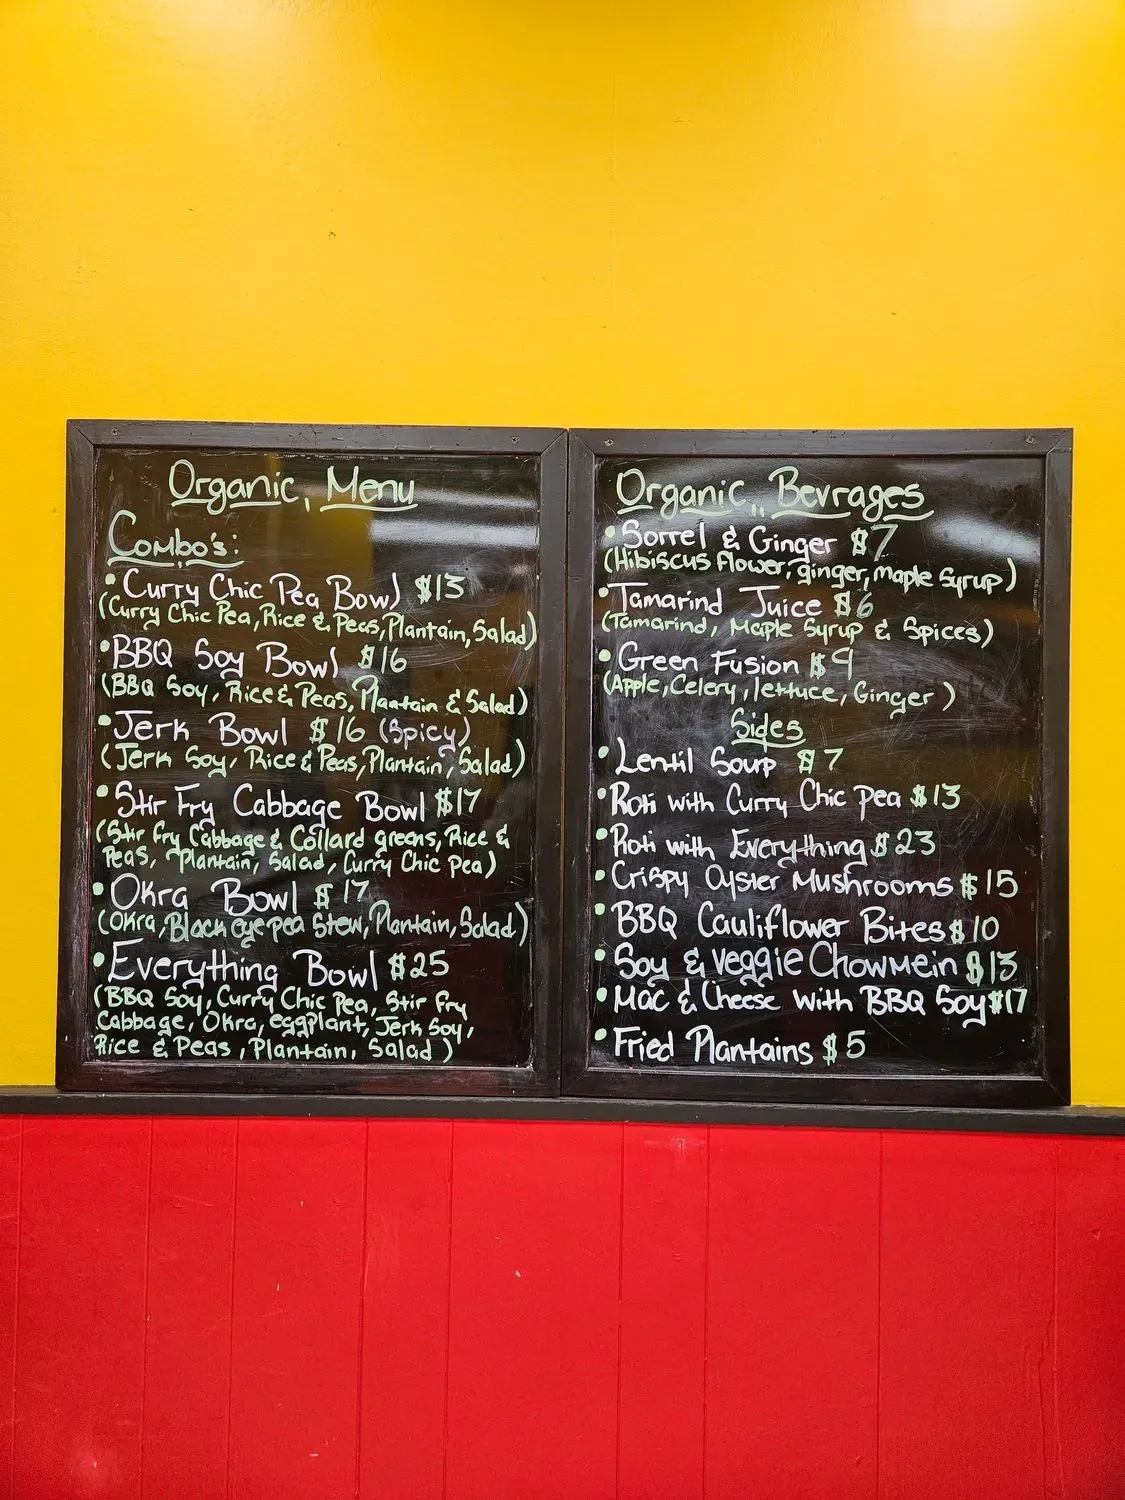 Organic Menu
Combo's:
• Curry Chic Pea Bowl $13
(Curry Chic Pea, Rice & Peas, Plantain, Salad)
• BBQ Soy Bowl $16
(BBQ Soy, Rice & Peas, Plantain & Salad)
• Jerk Bowl $16 (Spicy)
(Jerk Soy, Rice & Peas, Plantain, Salad)
• Stir Fry Cabbage Bowl $17
(Stir Fry Cabbage & Collard greens, Rice &
Peas, Plantain, Salad, Curry Chic Pea)
• Okra Bowl $17
(Okra, Black eye pea Stew, Plantain, Salad)
• Everything Bowl $25
(BBQ Soy, Curry Chic Pea, Stir Fry
Cabbage, Okra, eggplant, Jerk Soy,
Rice & Peas, Plantain, Salad)
Organic Bevrages
• Sorrel & Ginger $7
(Hibiscus flower, ginger, maple Syrup)
• Tamarind Juice $6
(Tamarind, Maple Syrup & Spices)
• Green Fusion $9
(Apple, Celery, lettuce, Ginger)
Sides
• Lentil Soup $7
• Roti with Curry Chic pea $13
• Roti with Everything $23
• Crispy Oyster Mushrooms $15
• BBQ Cauliflower Bites $10
• Soy & veggie Chowmein $13
• Mac & Cheese with BBQ Soy $17
• Fried Plantains $5